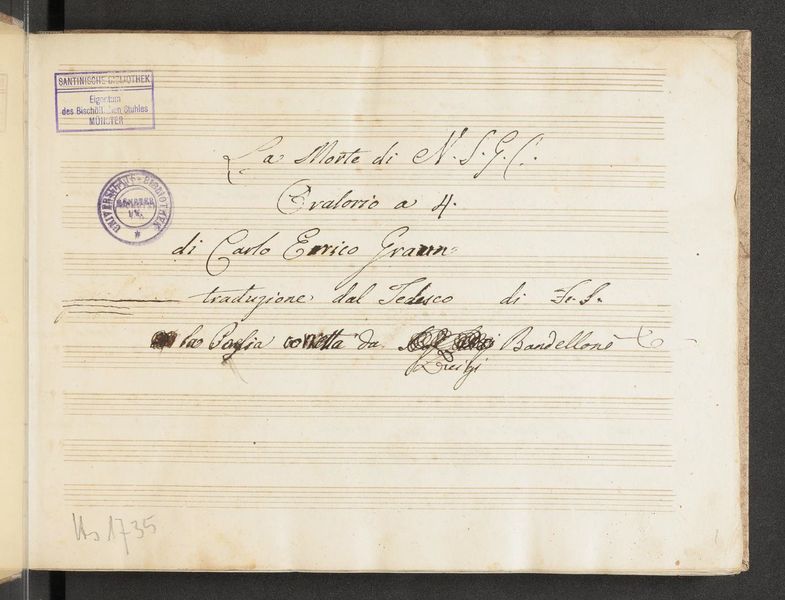 SANTINISCHE BIBLIOTHEK
Eigentum
des Bischöflichen Stuhles
MÜNSTER
La Morte di N. S. G. C.
UNIVERSITÄTS-BIBLIOTHEK
MÜNSTER
i.W.
Oratorio a 4.
di Carlo Enrico Graun
traduzione dal Tedesco di F. S.
la Poesia corretta da Bandelloni
Luigi
Hs 1735
1